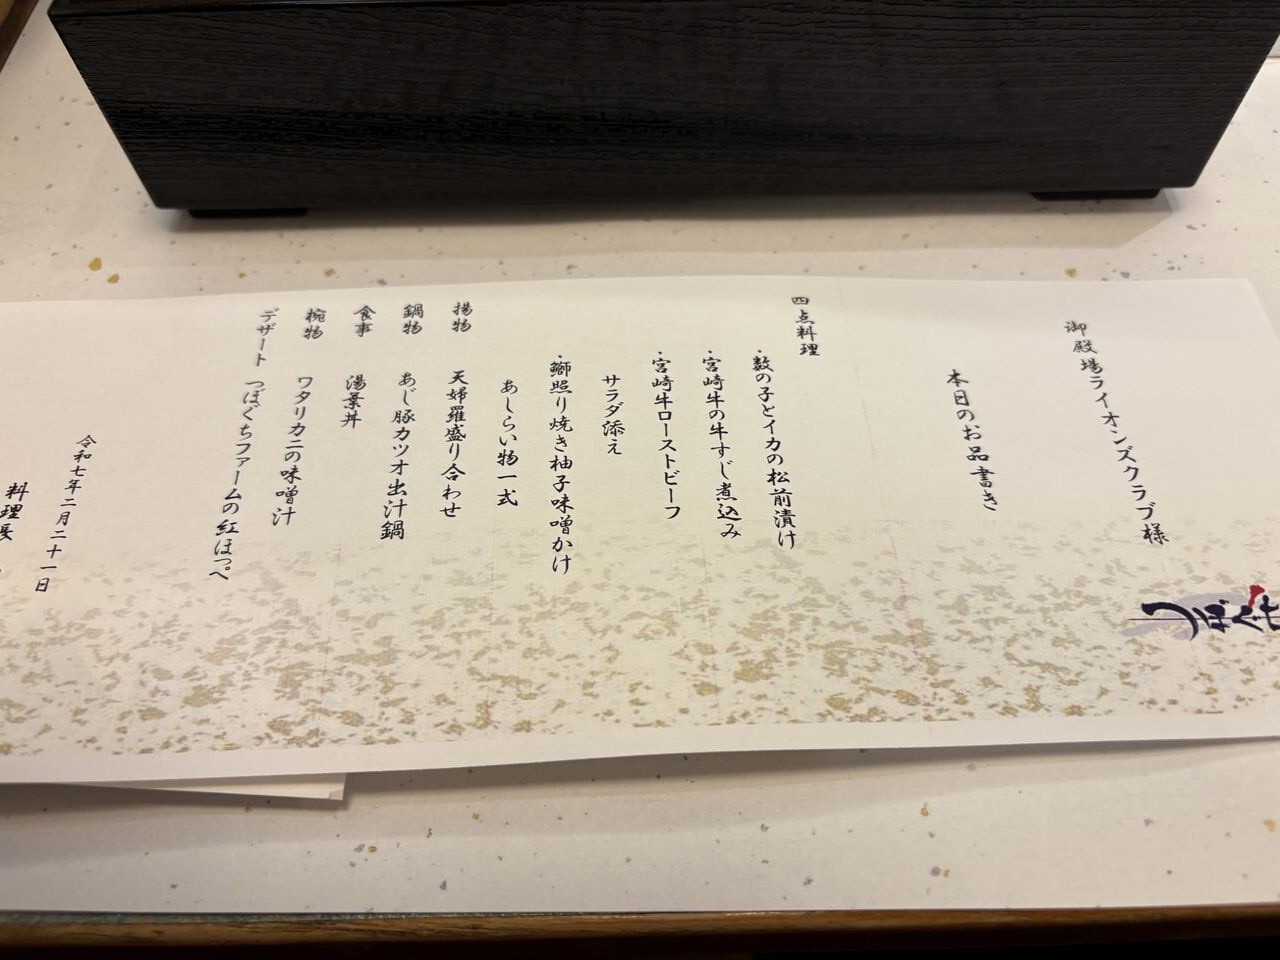 御殿場ライオンズクラブ様
本日のお品書き
四点料理
・数の子とイカの松前漬け
・宮崎牛の牛すじ煮込み
・宮崎牛ローストビーフ
サラダ添え
・鰤照り焼き柚子味噌かけ
あしらい物一式
揚物 天婦羅盛り合わせ
鍋物 あじ豚カツオ出汁鍋
食事 湯葉丼
椀物 ワタリカニの味噌汁
デザート つぼぐちファームの紅ほっぺ
令和七年二月二十一日
料理長